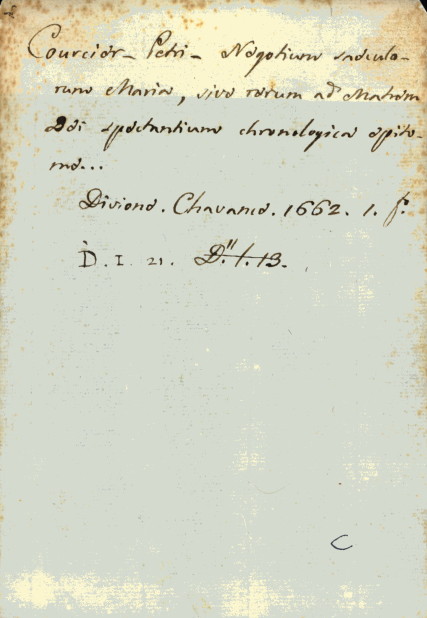 Courcier - Petri - Negotium saeculo-
rum Maria, sive rerum ad Matrem
Dei spectantium chronologica epito-
me...
Divione. Chavance. 1662. 1. f.º
D. I. 21. D." t. 13.
C